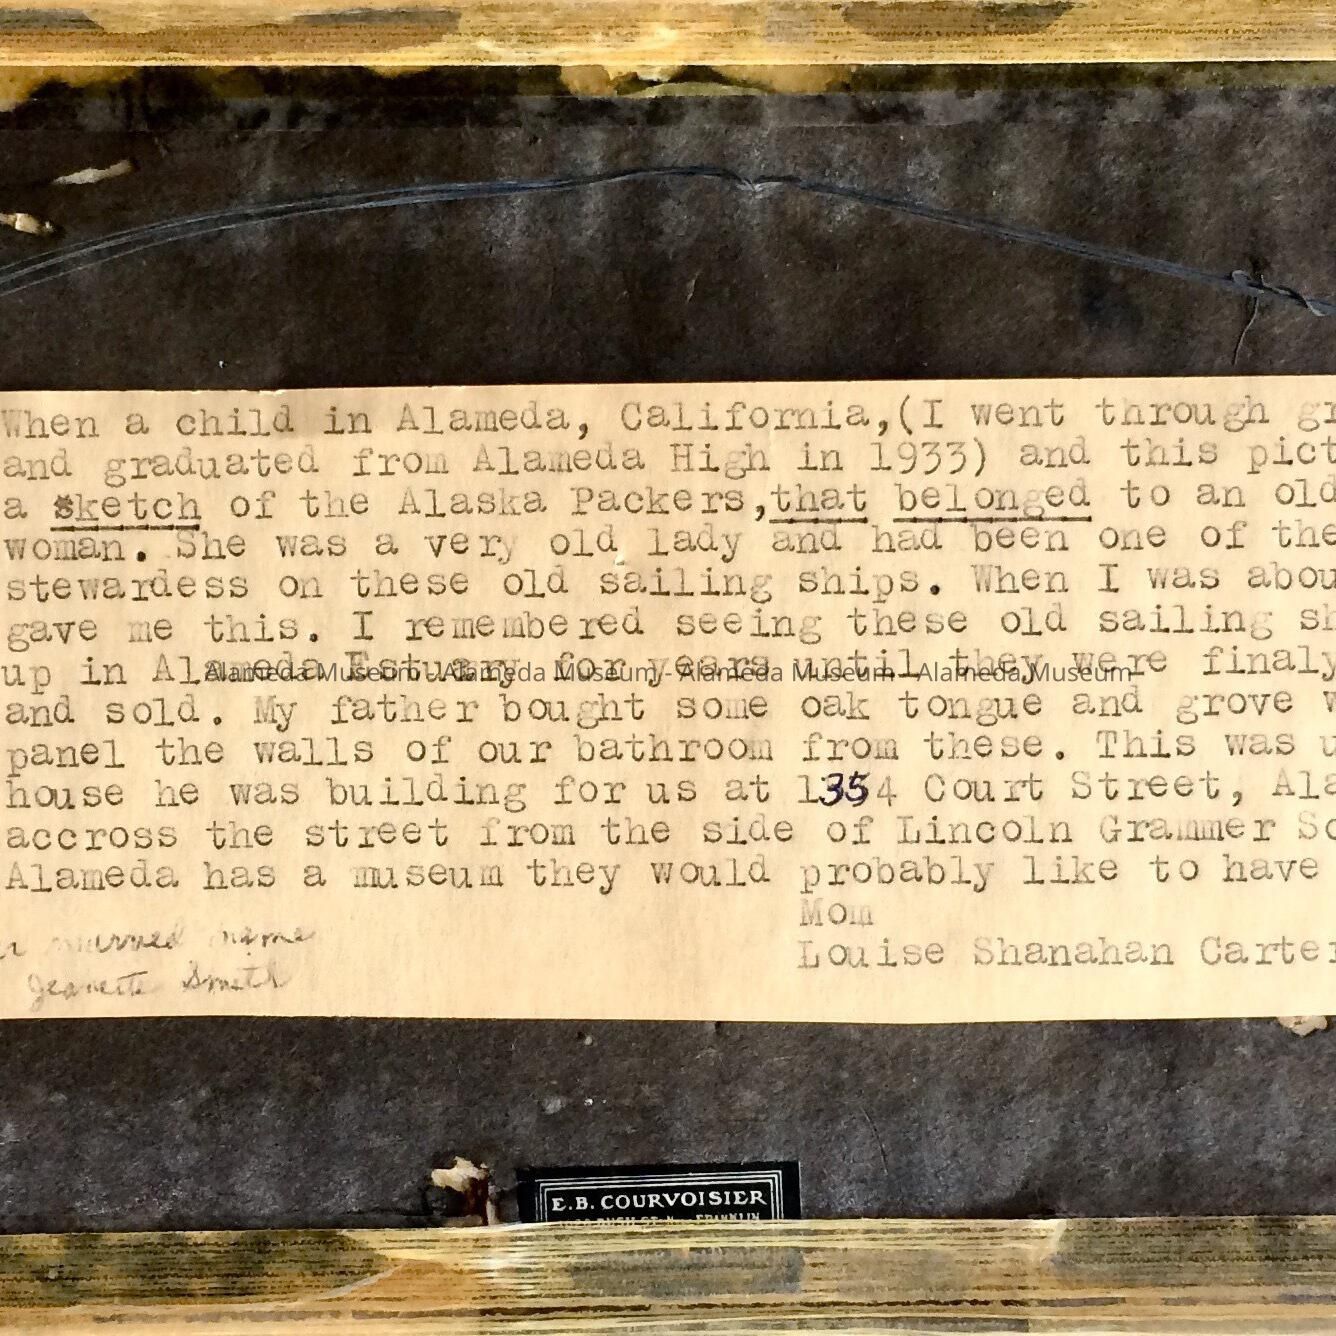 When a child in Alameda, California,(I went through gr
and graduated from Alameda High in 1933) and this pict
a sketch of the Alaska Packers,that belonged to an old
woman. She was a very old lady and had been one of the
stewardess on these old sailing ships. When I was abou
gave me this. I remembered seeing these old sailing sh
up in Alameda Estuary for years until they were finaly
Alameda Museum - Alameda Museum - Alameda Museum - Alameda Museum
and sold. My father bought some oak tongue and grove w
panel the walls of our bathroom from these. This was u
house he was building for us at 1354 Court Street, Ala
accross the street from the side of Lincoln Grammer Sc
Alameda has a museum they would probably like to have
Mom
Louise Shanahan Carter
married name
Jeanette Smith
E.B. COURVOISIER